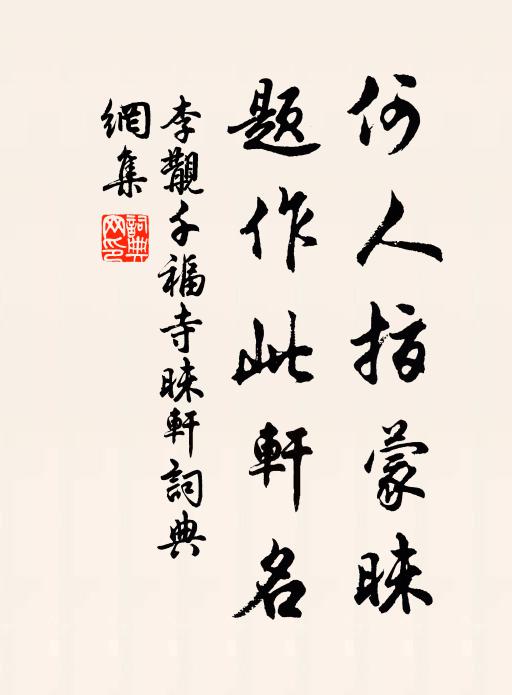 何人指蒙昧
題作此軒名
李覯千福寺昧軒詞典
網集
詞典
网印